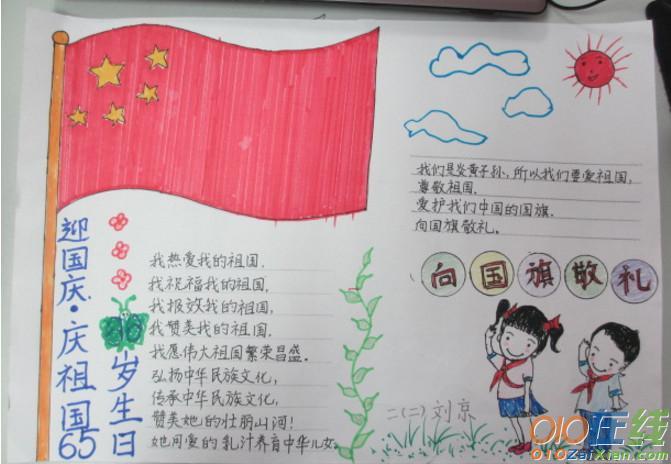 迎国庆·庆祝国65
岁生日
我热爱我的祖国.
我祝福我的祖国,
我报效我的祖国,
我赞美我的祖国.
我愿伟大祖国繁荣昌盛。
弘扬中华民族文化,
传承中华民族文化,
赞美她的壮丽山河!
她用爱的乳汁养育中华儿女。
我们是炎黄子孙,所以我们要爱祖国,
尊敬祖国.
爱护我们中国的国旗.
向国旗敬礼。
向国旗敬礼
二(二)刘京
010在线
010ZaiXian.com